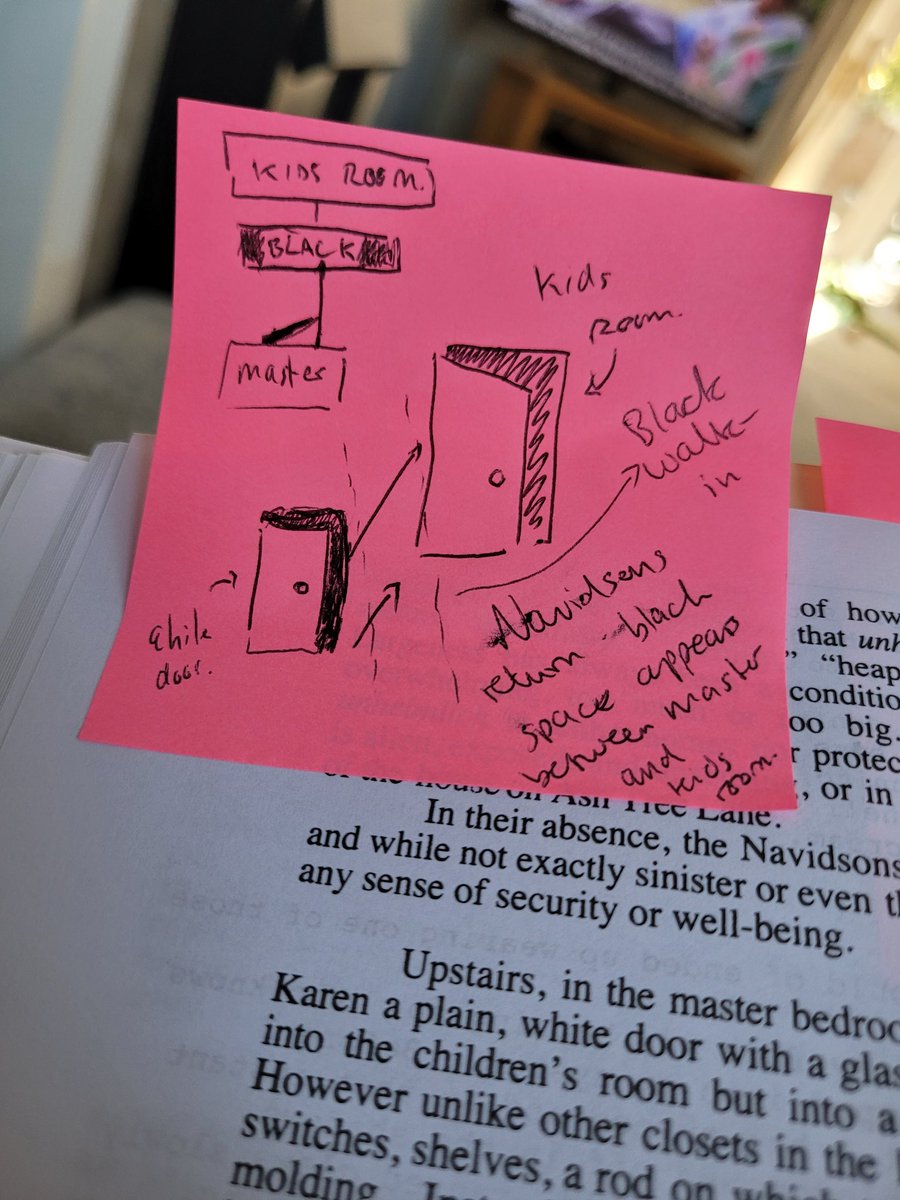 KIDS ROOM.
BLACK
master
Kids
Room.
Black
walk-
in
White
door.
Navidsons
return - black
space appears
between master
and
kids
room.
of how
that unh
" "heap
conditio
oo big.
r protec
, or in
of the house on Ash Tree Lane.
In their absence, the Navidsons
and while not exactly sinister or even th
any sense of security or well-being.
Upstairs, in the master bedroo
Karen a plain, white door with a glas
into the children's room but into a
However unlike other closets in the
switches, shelves, a rod on which
molding. Inst